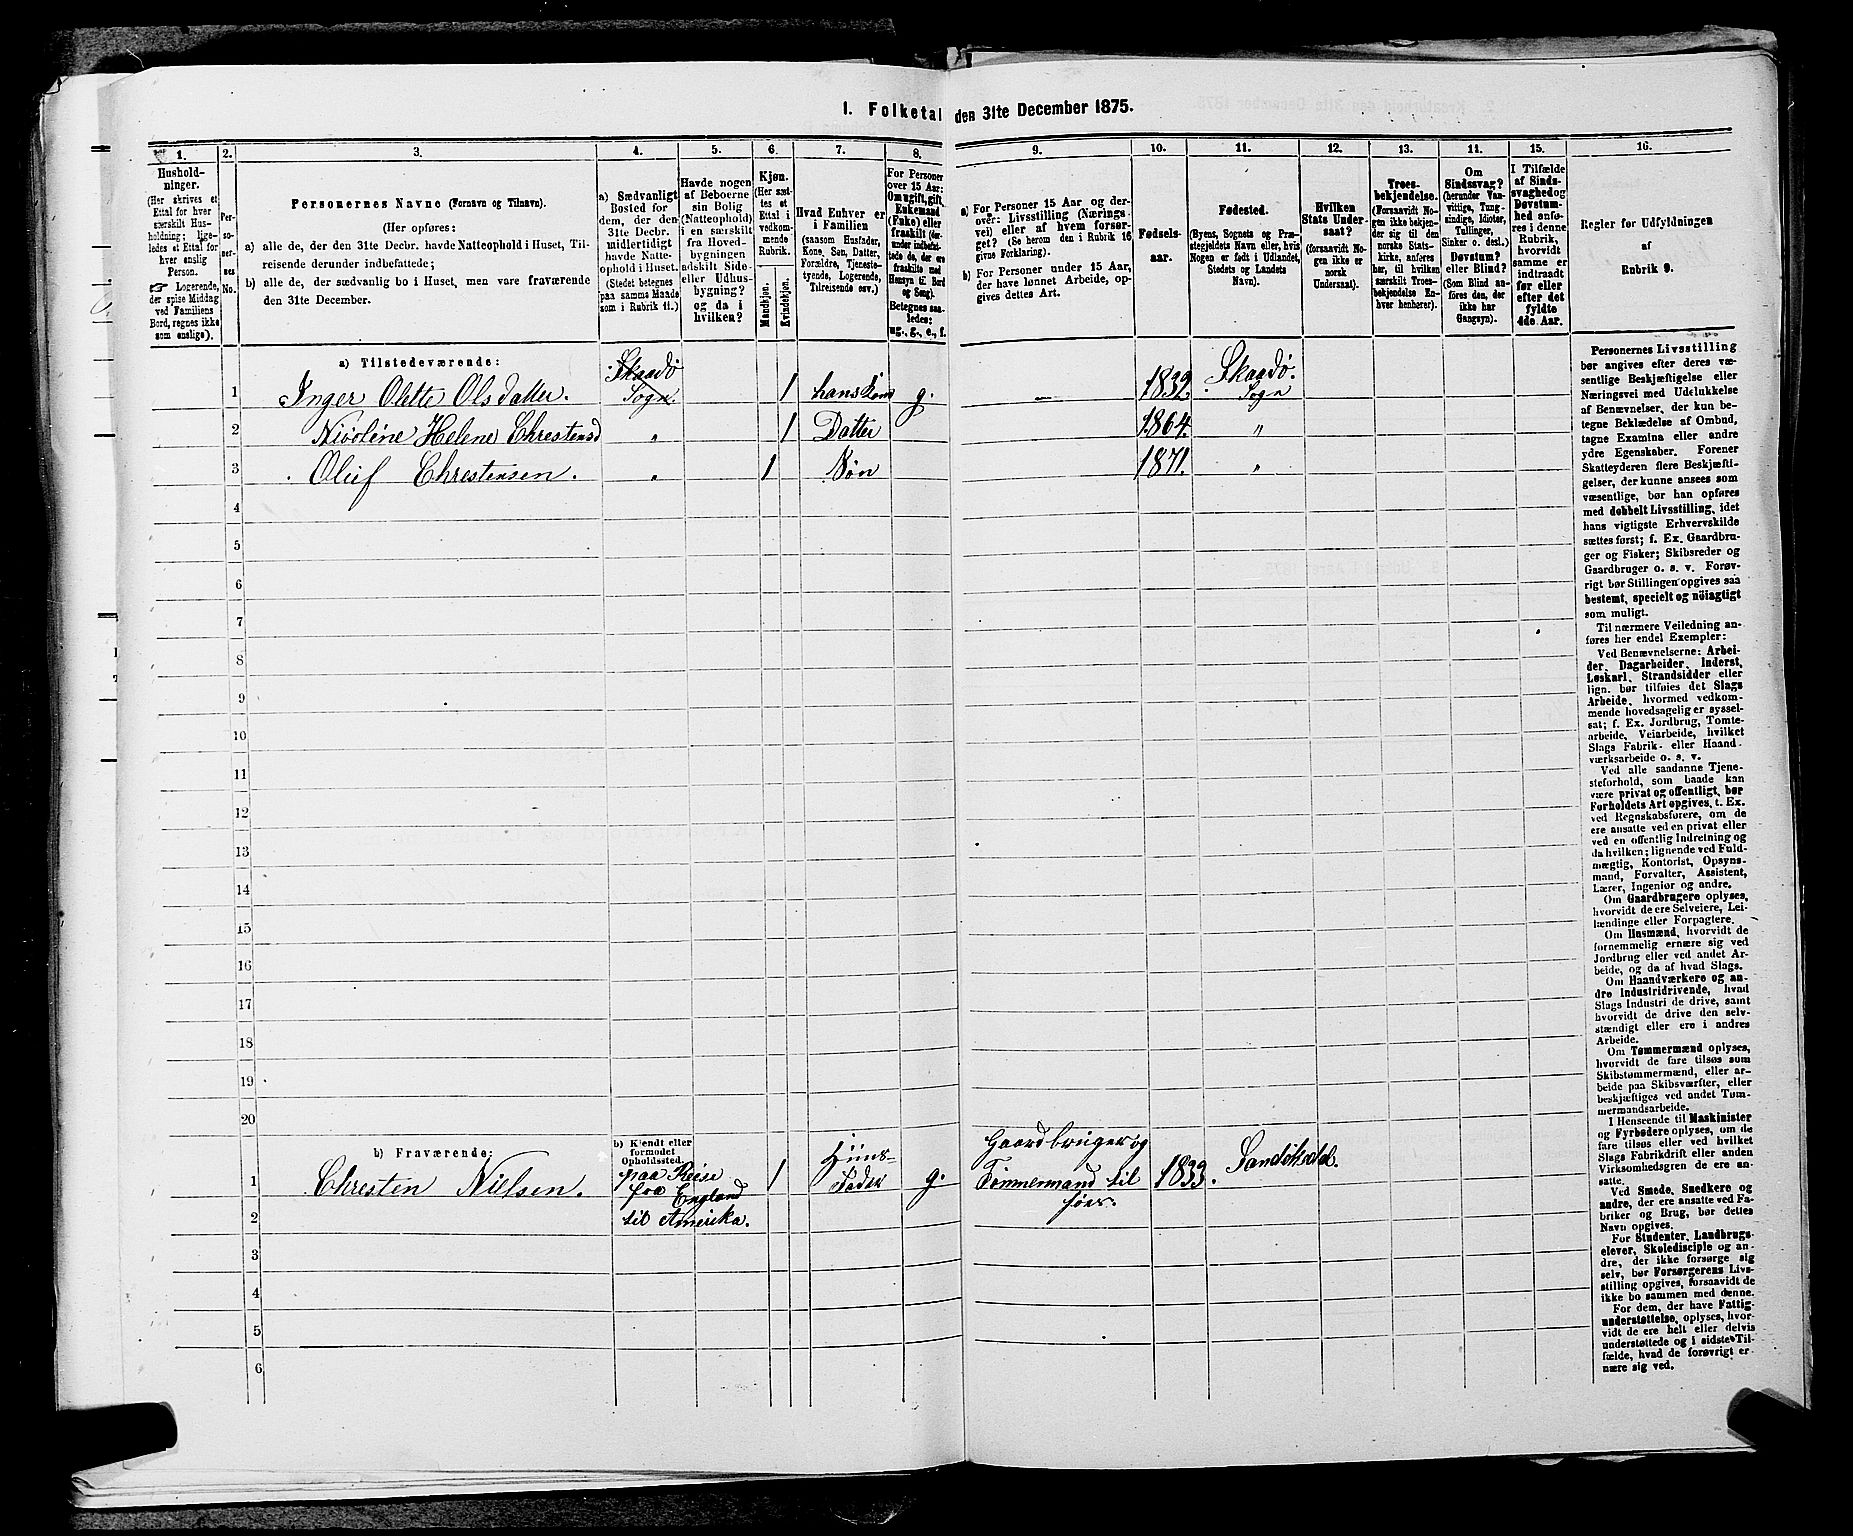 1. Folketal den 31te December 1875.
1.
2.
3.
4.
5.
6.
7.
8.
9.
10.
11.
12.
13.
11.
15.
16.
Hushold-
ninger.
(Her skrives et
Ettal for hver
særskilt Hus-
holdning; lige-
ledes et Ettal for
hver enslig
Person.
☞ Logerende,
der spise Middag
ved Familiens
Bord, regnes ikke
som enslige).
Per-
so-
ner-
nes
No.
Personernes Navne (Fornavn og Tilnavn).
(Her opføres:
a) alle de, der den 31te Decbr. havde Natteophold i Huset, Til-
reisende derunder indbefattede;
b) alle de, der sædvanlig bo i Huset, men vare fraværende
den 31te December.
a) Sædvanligt
Bosted for
dem, der den
31te Decbr.
midlertidigt
havde Natte-
ophold i Huset.
(Stedet betegnes
paa samme Maade
som i Rubrik 11.)
Havde nogen
af Beboerne
sin Bolig
(Natteophold)
i en særskilt
fra Hoved-
bygningen
adskilt Side-
eller Udhus-
bygning?
og da i
hvilken?
Kjøn.
(Her sæt-
tes et
Ettal i
vedkom-
mende
Rubrik.
Mandkjøn.
Kvindekjøn.
Hvad Enhver er
i Familien
(saasom Husfader,
Kone, Søn, Datter,
Forældre, Tjeneste-
tyende, Logerende,
Tilreisende osv.)
For Personer
over 15 Aar:
Om ugift, gift,
Enkemand
(Enke) eller
fraskilt (her-
under indbefat-
tede de, der ere
fraskilte med
Hensyn til Bord
og Seng).
Betegnes saa-
ledes:
ug., g., e., f.
a) For Personer 15 Aar og der-
over: Livsstilling (Nærings-
vei) eller af hvem forsør-
get? (Se herom den i Rubrik 16
givne Forklaring).
b) For Personer under 15 Aar,
der have lønnet Arbeide, op-
gives dettes Art.
Fødsels-
aar.
Fødested.
(Byens, Sognets og Præ-
stegjeldets Navn eller, hvis
Nogen er født i Udlandet,
Stedets og Landets
Navn).
Hvilken
Stats Under-
saat?
(forsaavidt No-
gen ikke er
norsk
Undersaat).
Troes-
bekjendelse.
(Forsaavidt No-
gen ikke bekjen-
der sig til den
norske Stats-
kirke, anføres
her, til hvilken
særskilt Troes-
bekjendelse En-
hver henhører).
Om
Sindssvag?
(herunder Van-
vittige, Tung-
sindige, Idioter,
Tullinger,
Sinker o. desl.)
Døvstum?
eller Blind?
(Som Blind an-
føres den, der
ikke har
Gangsyn).
I Tilfælde
af Sinds-
svaghed og
Døvstum-
hed anfø-
res i denne
Rubrik,
hvorvidt
samme er
indtraadt
før eller
efter det
fyldte
4de Aar.
Regler for Udfyldningen
af
Rubrik 9.
a) Tilstedeværende:
1 Inger Olette Olsdatter. Skaadø Sogn. 1 hans Kone g. 1832. Skaadø Sogn
2 Nicoline Helene Chrestensd " 1 Datter 1864. "
3 Oluf Chrestensen. " 1 Søn 1871. "
4
5
6
7
8
9
10
11
12
13
14
15
16
17
18
19
20
b) Fraværende:
b) Kjendt eller
formodet
Opholdssted.
1 Chresten Nielsen. paa Reise fra England 1 Huus- Fader g. Gaardbruger og Tømmermand til søes. 1833.
2 til Amerika.
3
4
5
6
Personernes Livsstilling
bør angives efter deres væ-
sentlige Beskjæftigelse eller
Næringsvei med Udelukkelse
af Benævnelser, der kun be-
tegne Beklædelse af Ombud,
tagne Examina eller andre
ydre Egenskaber. Forener
Skatteyderen flere Beskjæfti-
gelser, der kunne ansees som
væsentlige, bør han opføres
med dobbelt Livsstilling, idet
hans vigtigste Erhvervskilde
sættes først; f. Ex. Gaardbru-
ger og Fisker; Skibsreder og
Gaardbruger o. s. v. Forøv-
rigt bør Stillingen opgives saa
bestemt, specielt og nöiagtigt
som muligt.
Til nærmere Veiledning an-
føres her endel Exempler:
Ved Benævnelserne: Arbei-
der, Dagarbeider, Inderst,
Løskarl, Strandsidder eller
lign. bør tilføies det Slags
Arbeide, hvormed vedkom-
mende hovedsagelig er syssel-
sat; f. Ex. Jordbrug, Tomte-
arbeide, Veiarbeide, hvilket
Slags Fabrik- eller Haand-
værksarbeide o. s. v.
Ved alle saadanne Tjene-
steforhold, som baade kan
være privat og offentligt, bør
Forholdets Art opgives, t. Ex.
ved Regnskabsførere, om de
ere ansatte ved en privat eller
ved en offentlig Indretning og
da hvilken; lignende ved Fuld-
mægtig, Kontorist, Opsyns-
mand, Forvalter, Assistent,
Lærer, Ingeniør og andre.
Om Gaardbrugere oplyses,
hvorvidt de ere Selveiere, Lei-
lændinge eller Forpagtere.
Om Husmænd, hvorvidt de
fornemmelig ernære sig ved
Jordbrug eller ved andet Ar-
beide, og da af hvad Slags.
Om Haandværkere og an-
dre Industridrivende, hvad
Slags Industri de drive, samt
hvorvidt de drive den selv-
stændigt eller ere i andres
Arbeide.
Om Tømmermænd oplyses,
hvorvidt de fare tilsøs som
Skibstømmermænd, eller ar-
beide paa Skibsværfter, eller
beskjæftiges ved andet Tøm-
mermandsarbeide.
I Henseende til Maskinister
og Fyrbødere oplyses, om de
fare tilsøs eller ved hvilket
Slags Fabrikdrift eller anden
Virksomhedsgren de ere an-
satte.
Ved Smede, Snedkere og
andre, der ere ansatte ved Fa-
briker og Brug, bør dettes
Navn opgives.
For Studenter, Landbrugs-
elever, Skoledisciple og an-
dre, der ikke forsørge sig
selv, bør Forsørgerens Livs-
stilling opgives, forsaavidt de
ikke bo sammen med denne.
For dem, der have Fattig-
understøttelse, oplyses, hvor-
vidt de ere helt eller delvis
understøttede og i sidste Til-
fælde, hvad de forøvrigt er-
nære sig ved.